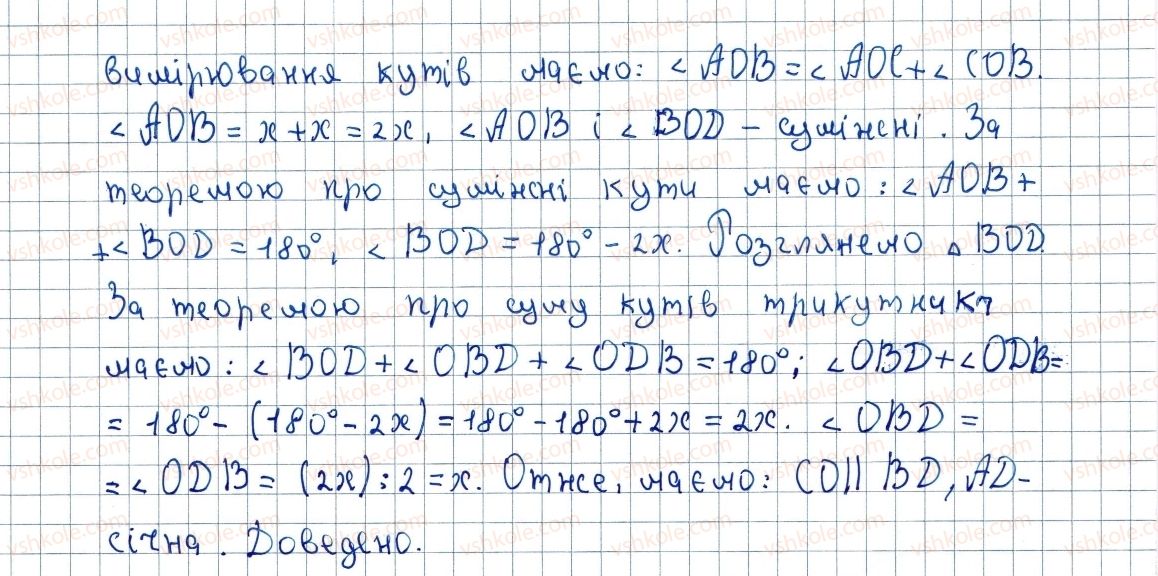 вимірювання кутів маємо: < AOB = < AOC + < COB.
< AOB = x + x = 2x, < AOB і < BOD – суміжні. За
теоремою про суміжні кути маємо: < AOB +
+ < BOD = 180°, < BOD = 180° – 2x. Розглянемо △ BOD.
За теоремою про суму кутів трикутника
маємо: < BOD + < OBD + < ODB = 180°; < OBD + < ODB =
= 180° – (180° – 2x) = 180° – 180° + 2x = 2x. < OBD =
= < ODB = (2x) : 2 = x. Отже, маємо: CO || BD, AD –
січна. Доведено.